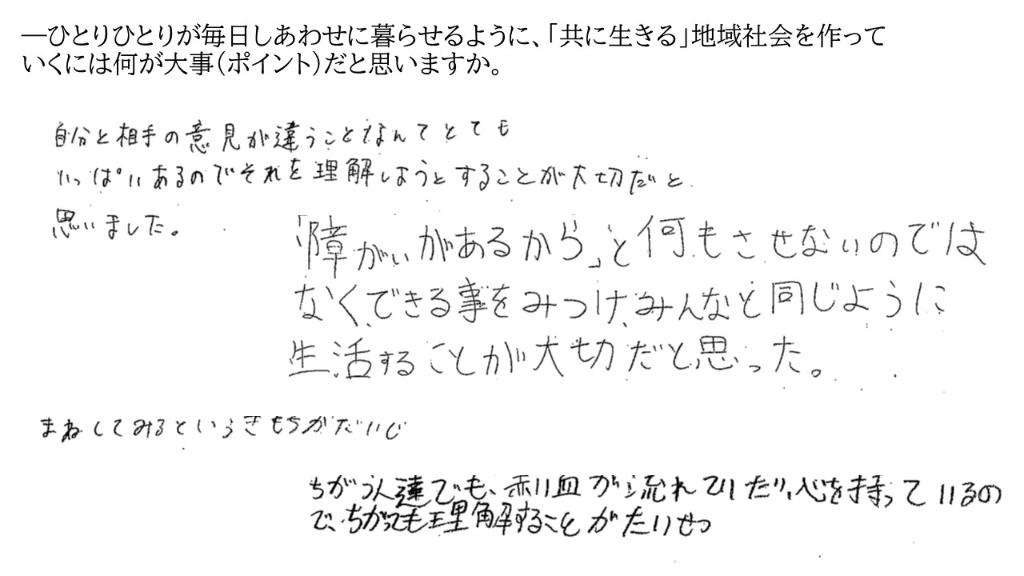 ―ひとりひとりが毎日しあわせに暮らせるように、「共に生きる」地域社会を作って
いくには何が大事（ポイント）だと思いますか。
自分と相手の意見が違うことなんてとても
いっぱいあるのでそれを理解しようとすることが大切だと
思いました。
「障がいがあるから」と何もさせないのでは
なく、できる事をみつけ、みんなと同じように
生活することが大切だと思った。
まねしてみるというきもちがだいじ
ちがう人達でも、赤い血が流れていたり、心を持っているの
で、ちがっても理解することがたいせつ